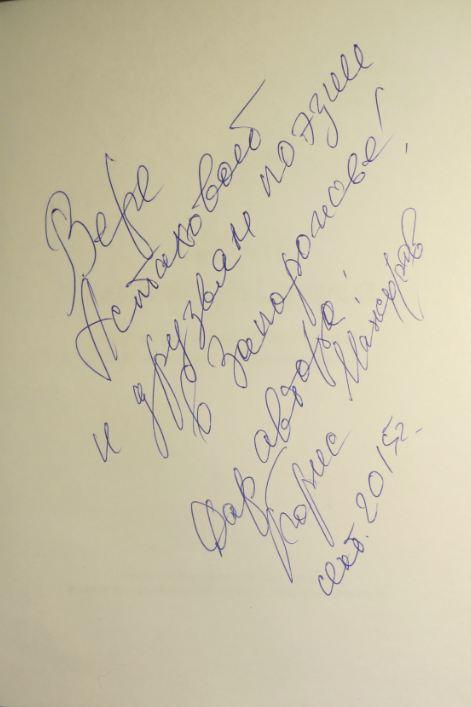 Вере
Астаховой
и друзьям поэзии
в Запорожье!
Дар автора!
Борис Манжуров
сент. 2015г.